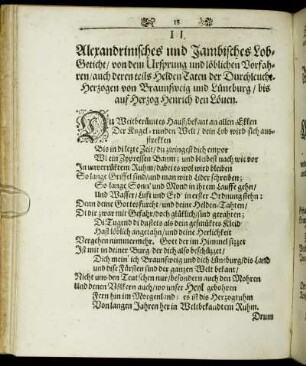 18
II.
Alexandrinisches und Jambisches Lob-
Geticht/ von dem Ursprung und löblichen Vorfah-
ren/ auch deren teils Helden Taten der Durchleucht.
Herzogen von Braunsweig und Lüneburg/ bis
auf Herzog Henrich den Löuen.
DU Weitberümtes Hauß/bekant an allen Ekken
Der Kugel-runden Welt/ dein Lob wird sich aus-
strekken
Bis in di lezte Zeit/ du zwingest dich empor
Wi ein Zypressen Baum; und bleibest nach wi vor
In unverrüktem Ruhm/ dabei es wol wird bleiben
So lange Griffel sind/und man wird Lider schreiben;
So lange Sonn' und Mond in ihrem Lauffe gehn/
Und Wasser/ Luft und Erd' in erster Ordnung stehn:
Denn deine Gottesfurcht und deine Helden-Tahten/
Di dir zwar mit Gefahr/doch glüklich/sind gerahten;
Di Tugend di du stets als dein geschmüktes Kleid
Hast löblich angetahn/und deine Herlichkeit
Vergehen nimmermehr. Gott der im Himmel sizzet
Ist mit in deiner Burg/der dich also beschüzzet/
Dich mein' ich Braunsweig und dich Lüneburg/dis Land
und dise Fürsten sind der ganzen Welt bekant/
Nicht uns den Teutschen nur/besondern auch den Mohren
Und denen Völkern auch/wo unser Heyl gebohren
Fern hin im Morgenland: es ist dis Herzogtuhm
Von langen Jahren her in Weltbekandtem Ruhm.
Drum